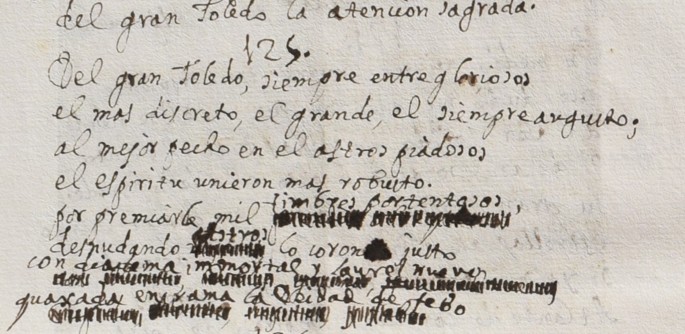 del gran Toledo la atencion sagrada.
125.
Del gran Toledo, siempre entre gloriosos
el mas discreto, el grande, el siempre augusto;
al mejor pecho en el astros piadosos
el espiritu unieron mas robusto.
por premiarle mil timbres portentosos,
desnudando astros lo coron justo
con diadema inmortal y laurel nuevo
quaxada en rama la Deidad de Febo